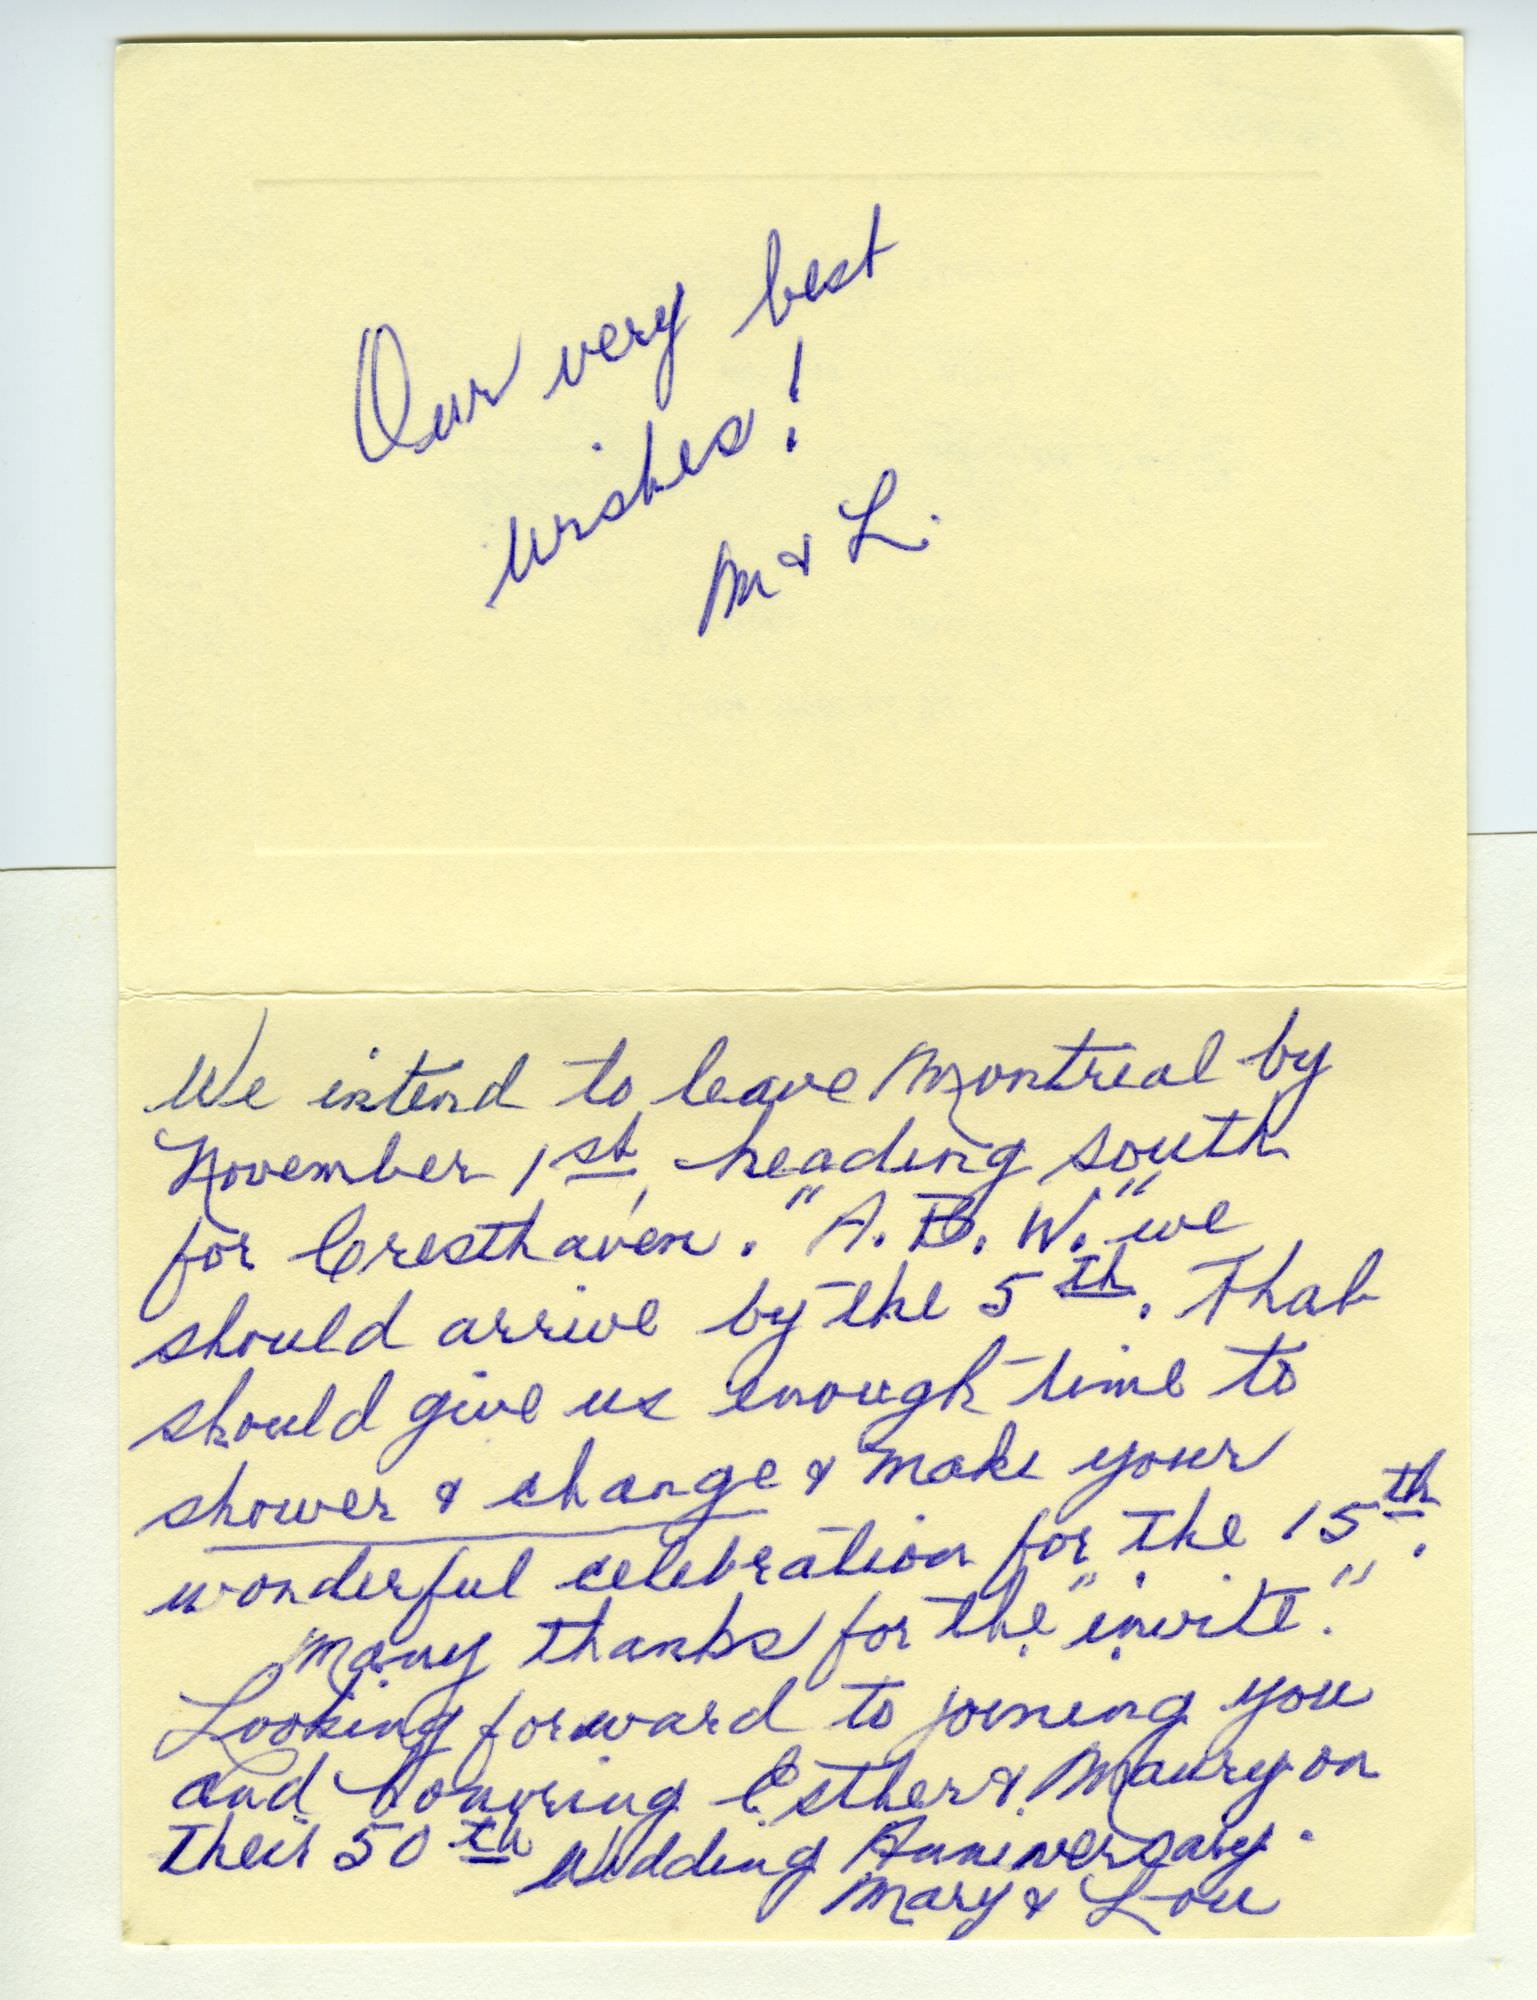 Our very best
wishes!
M & L.
We intend to leave Montreal by
November 1st, heading south
for Cresthaven. "A. B. W." we
should arrive by the 5th. That
should give us enough time to
shower & change & make your
wonderful celebration for the 15th.
Many thanks for the "invite."
Looking forward to joining you
and honoring Esther & Maury on
their 50th Wedding Anniversary.
Mary & Lou